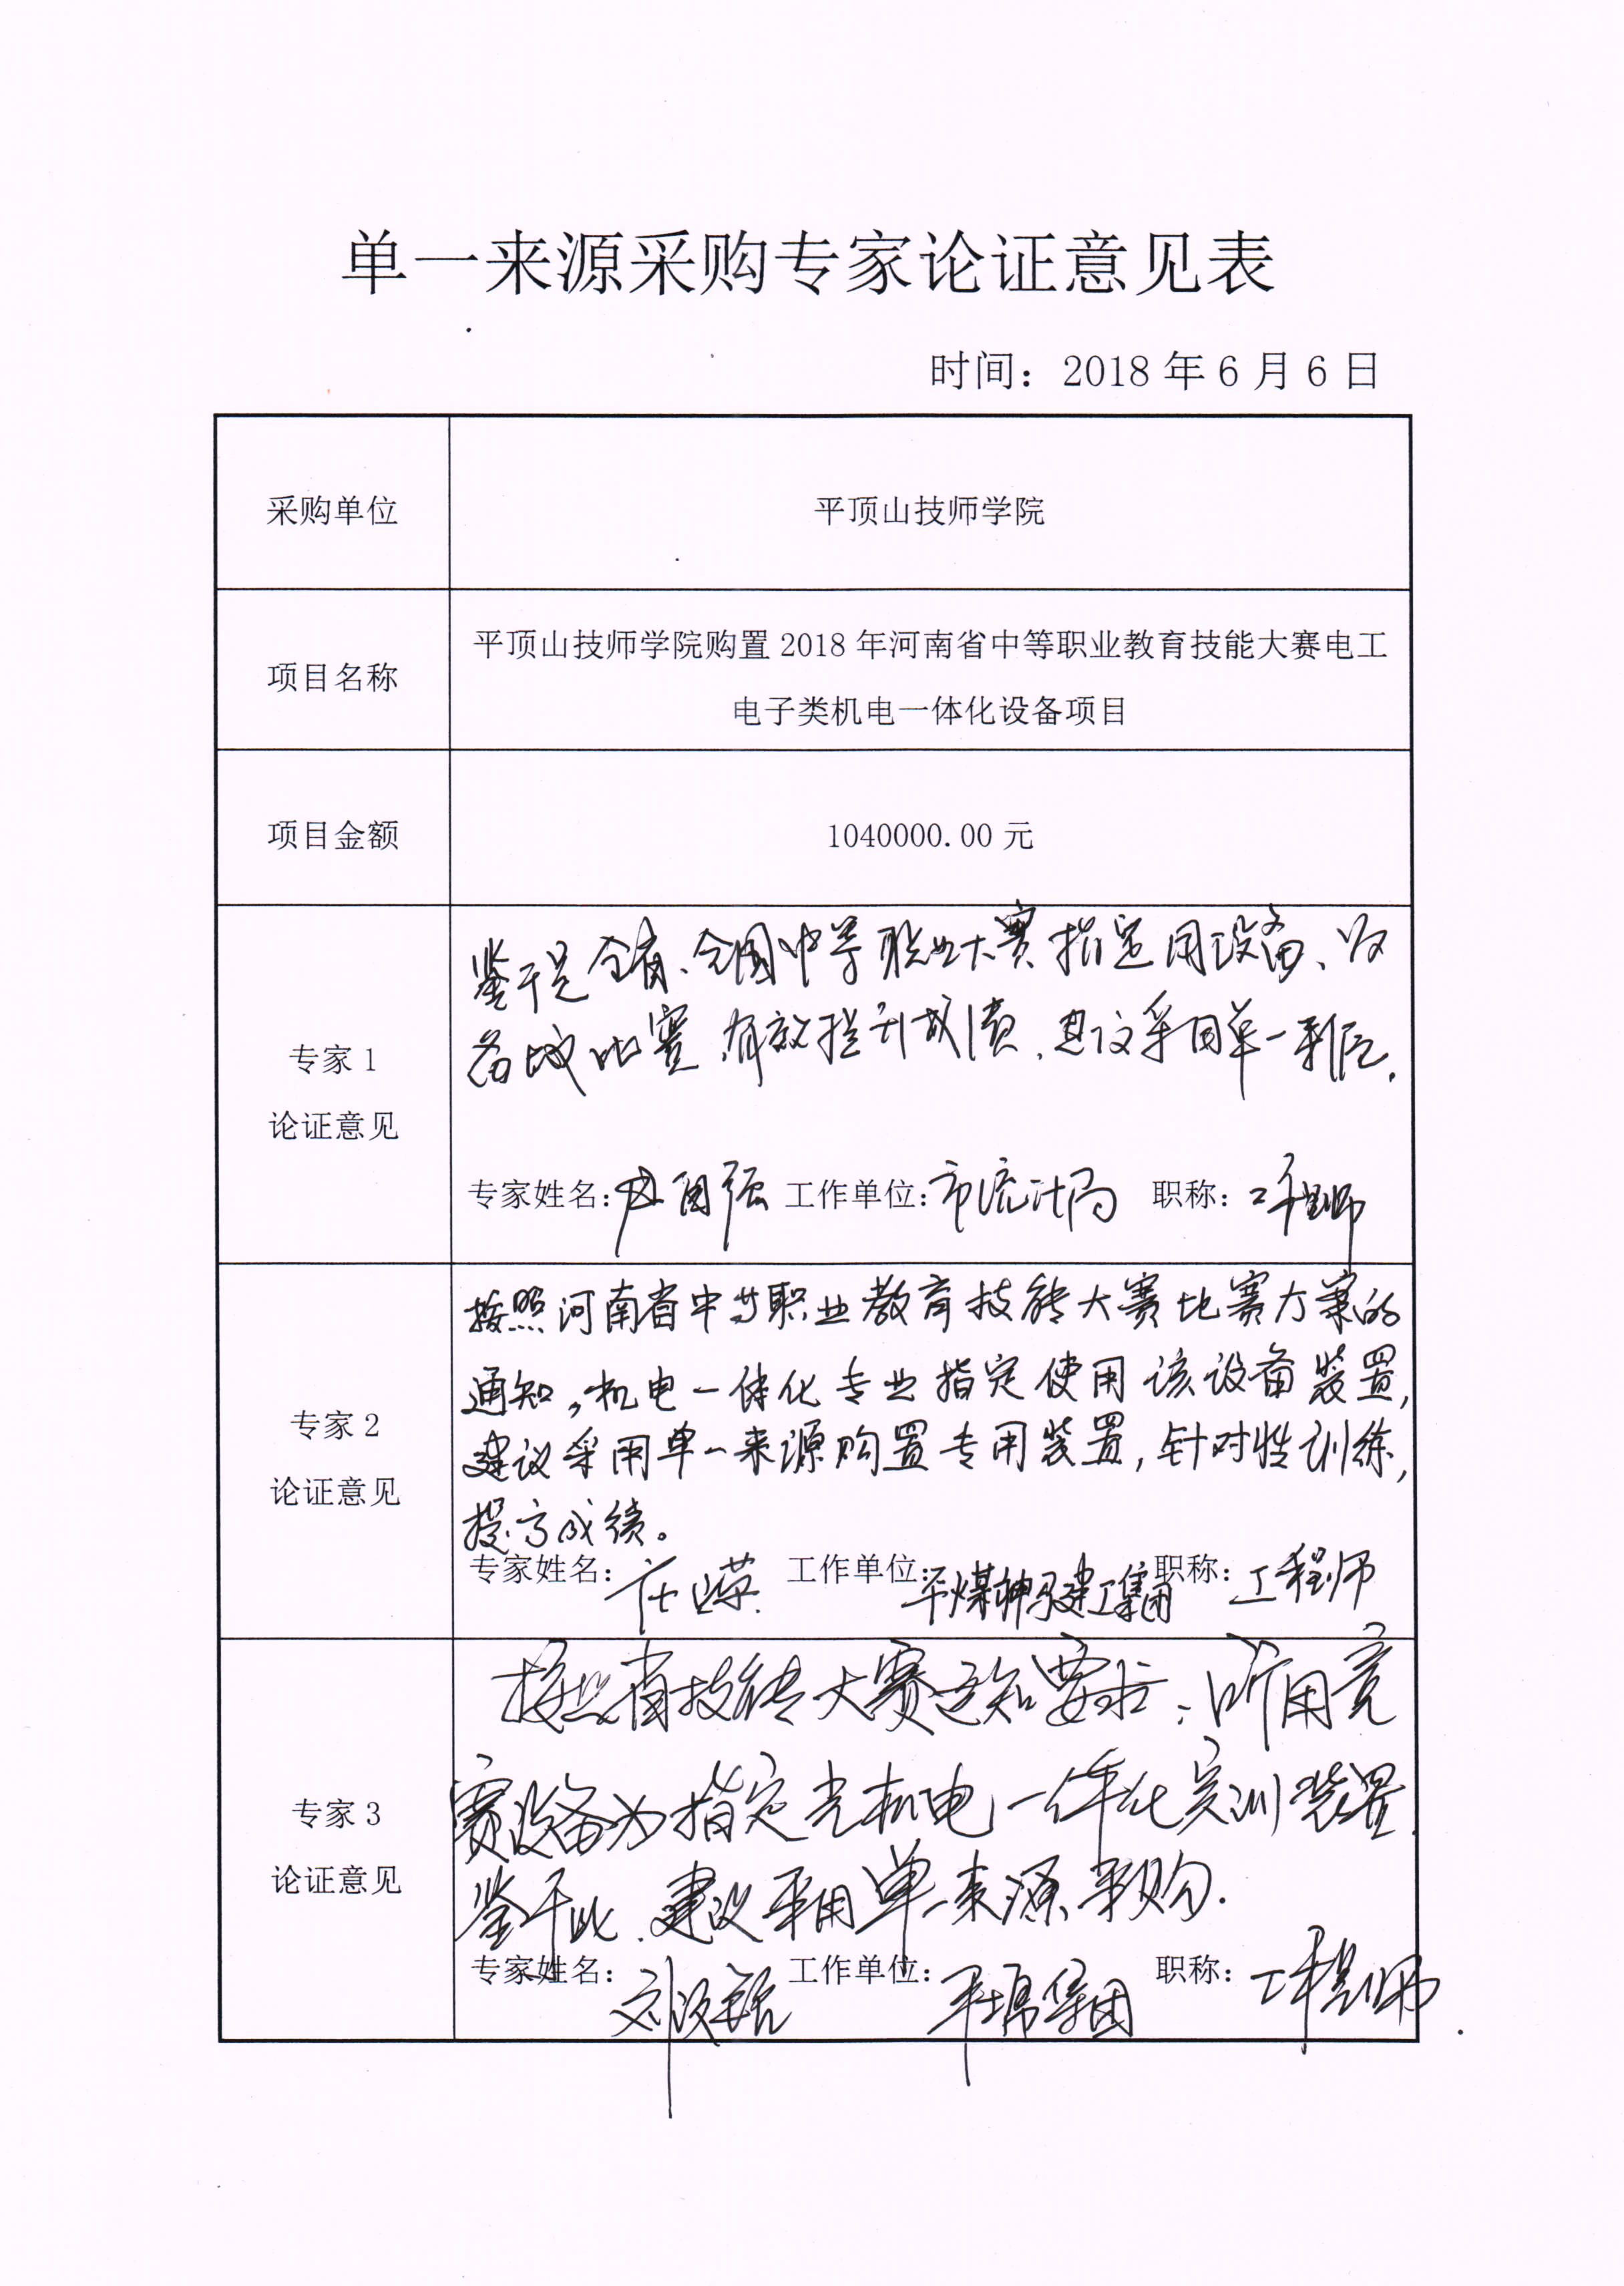 单一来源采购专家论证意见表
时间：2018年6月6日
采购单位
平顶山技师学院
项目名称
平顶山技师学院购置2018年河南省中等职业教育技能大赛电工
电子类机电一体化设备项目
项目金额
1040000.00元
专家1
论证意见
鉴于是全省、全国中等职业大赛指定用设备、为
比赛，有效提升成绩，建议采用单一来源.
专家姓名：自强 工作单位：市统计局 职称：工程师
专家2
论证意见
按照河南省中等职业教育技能大赛比赛方案的
通知，机电一体化专业指定使用该设备装置，
建议采用单一来源购置专用装置，针对性训练，
提高成绩。
专家姓名： 工作单位：平煤神马建工集团 职称：工程师
专家3
论证意见
按照省技能大赛通知要求：所用竞
赛设备为指定光机电一体化实训装置.
鉴于此，建议采用单一来源采购.
专家姓名：刘 工作单位：集团 职称：工程师